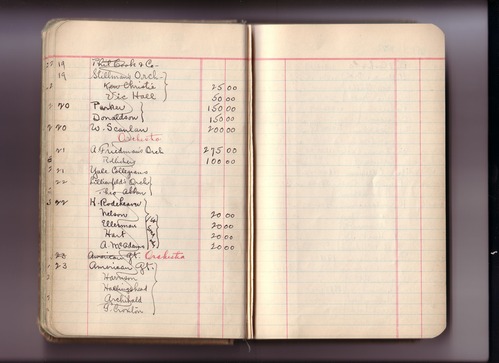 19 Phil Cook & Co-
19 Stillman's Orch-
Ken Christie 25 00
Vic Hall 50 00
20 Parker 150 00
Donaldson 150 00
20 W. Scanlan 200 00
Orchestra
21 A Friedman's Orch 275 00
100 00
21 Yale Collegians
22 Orch
22 H. Rodeheaver
Nelson 20 00
Ellerman 20 00
Hart 20 00
A. McAdams 20 00
23 American Qt. Orchestra
23 American Qt.
Harrison
Hollinshead
Archibald
F. Croxton